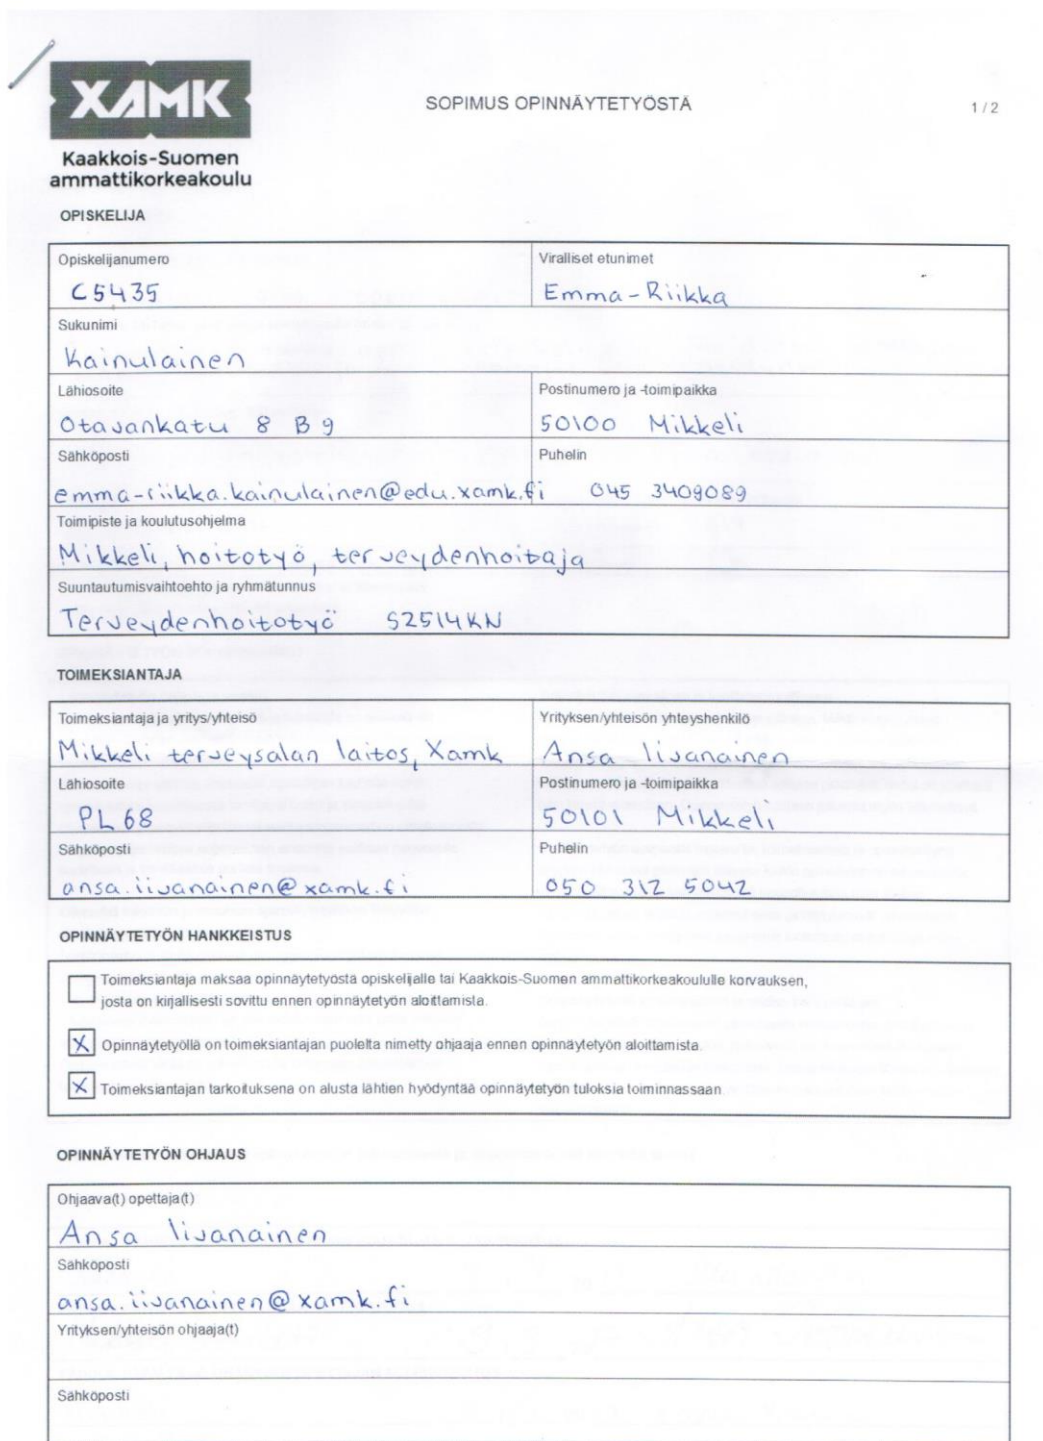 XAMK
Kaakkois-Suomen
ammattikorkeakoulu
SOPIMUS OPINNÄYTETYÖSTÄ
1 / 2
OPISKELIJA
Opiskelijanumero
Viralliset etunimet
C5435
Emma-Riikka
Sukunimi
Kainulainen
Lähiosoite
Postinumero ja -toimipaikka
Otavankatu 8 B 9
50100 Mikkeli
Sähköposti
Puhelin
emma-riikka.kainulainen@edu.xamk.fi
045 3409089
Toimipiste ja koulutusohjelma
Mikkeli, hoitotyö, terveydenhoitaja
Suuntautumisvaihtoehto ja ryhmätunnus
Terveydenhoitotyö S2514KN
TOIMEKSIANTAJA
Toimeksiantaja ja yritys/yhteisö
Yrityksen/yhteisön yhteyshenkilö
Mikkeli terveysalan laitos, Xamk
Ansa Iivanainen
Lähiosoite
Postinumero ja -toimipaikka
PL 68
50101 Mikkeli
Sähköposti
Puhelin
ansa.iivanainen@xamk.fi
050 312 5042
OPINNÄYTETYÖN HANKKEISTUS
Toimeksiantaja maksaa opinnäytetyöstä opiskelijalle tai Kaakkois-Suomen ammattikorkeakoululle korvauksen,
josta on kirjallisesti sovittu ennen opinnäytetyön aloittamista.
X Opinnäytetyöllä on toimeksiantajan puolelta nimetty ohjaaja ennen opinnäytetyön aloittamista.
X Toimeksiantajan tarkoituksena on alusta lähtien hyödyntää opinnäytetyön tuloksia toiminnassaan.
OPINNÄYTETYÖN OHJAUS
Ohjaava(t) opettaja(t)
Ansa Iivanainen
Sähköposti
ansa.iivanainen@xamk.fi
Yrityksen/yhteisön ohjaaja(t)
Sähköposti